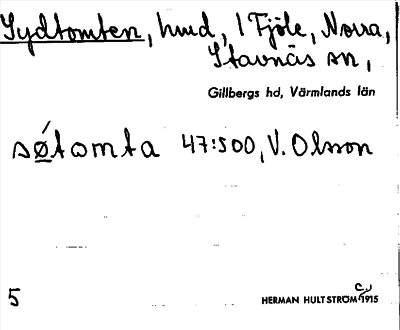 Sydtomten, hmd, 1 Fjöle, Norra,
Stavnäs sn,
Gillbergs hd, Värmlands län
sǿtomta 47:500, V. Olsson
5
HERMAN HULTSTRÖM c. 1915